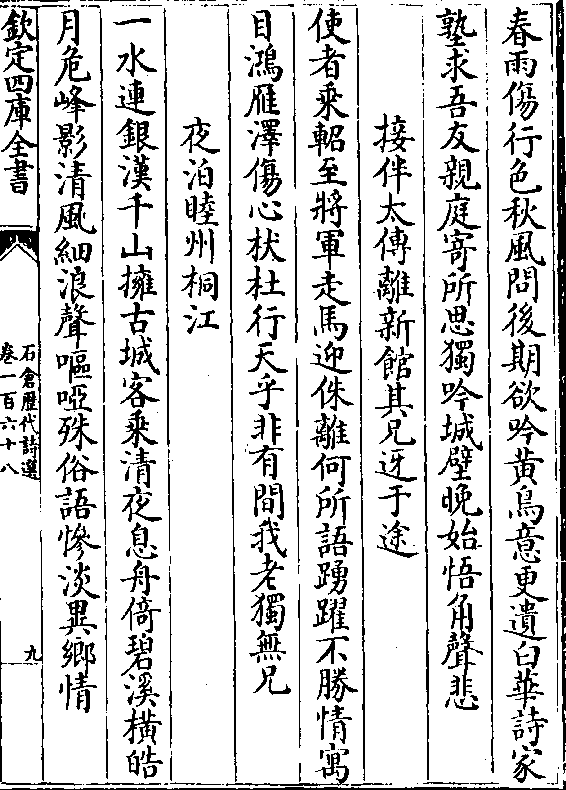 春雨傷行色秋風問後期欲吟黄鳥意更遺白華詩家
塾求吾友親庭寄所思獨吟城壁晚始悟角聲悲
接伴太傅離新館其兄迓于途
使者乘軺至將軍走馬迎侏離何所語踴躍不勝情寓
目鴻雁澤傷心杕杜行天乎非有間我老獨無兄
夜泊睦州桐江
一水連銀漢千山擁古城客乘清夜息舟倚碧溪橫皓
月危峰影清風細浪聲嘔啞殊俗語慘淡異鄉情
欽定四庫全書
石倉歷代詩選
卷一百六十八
九